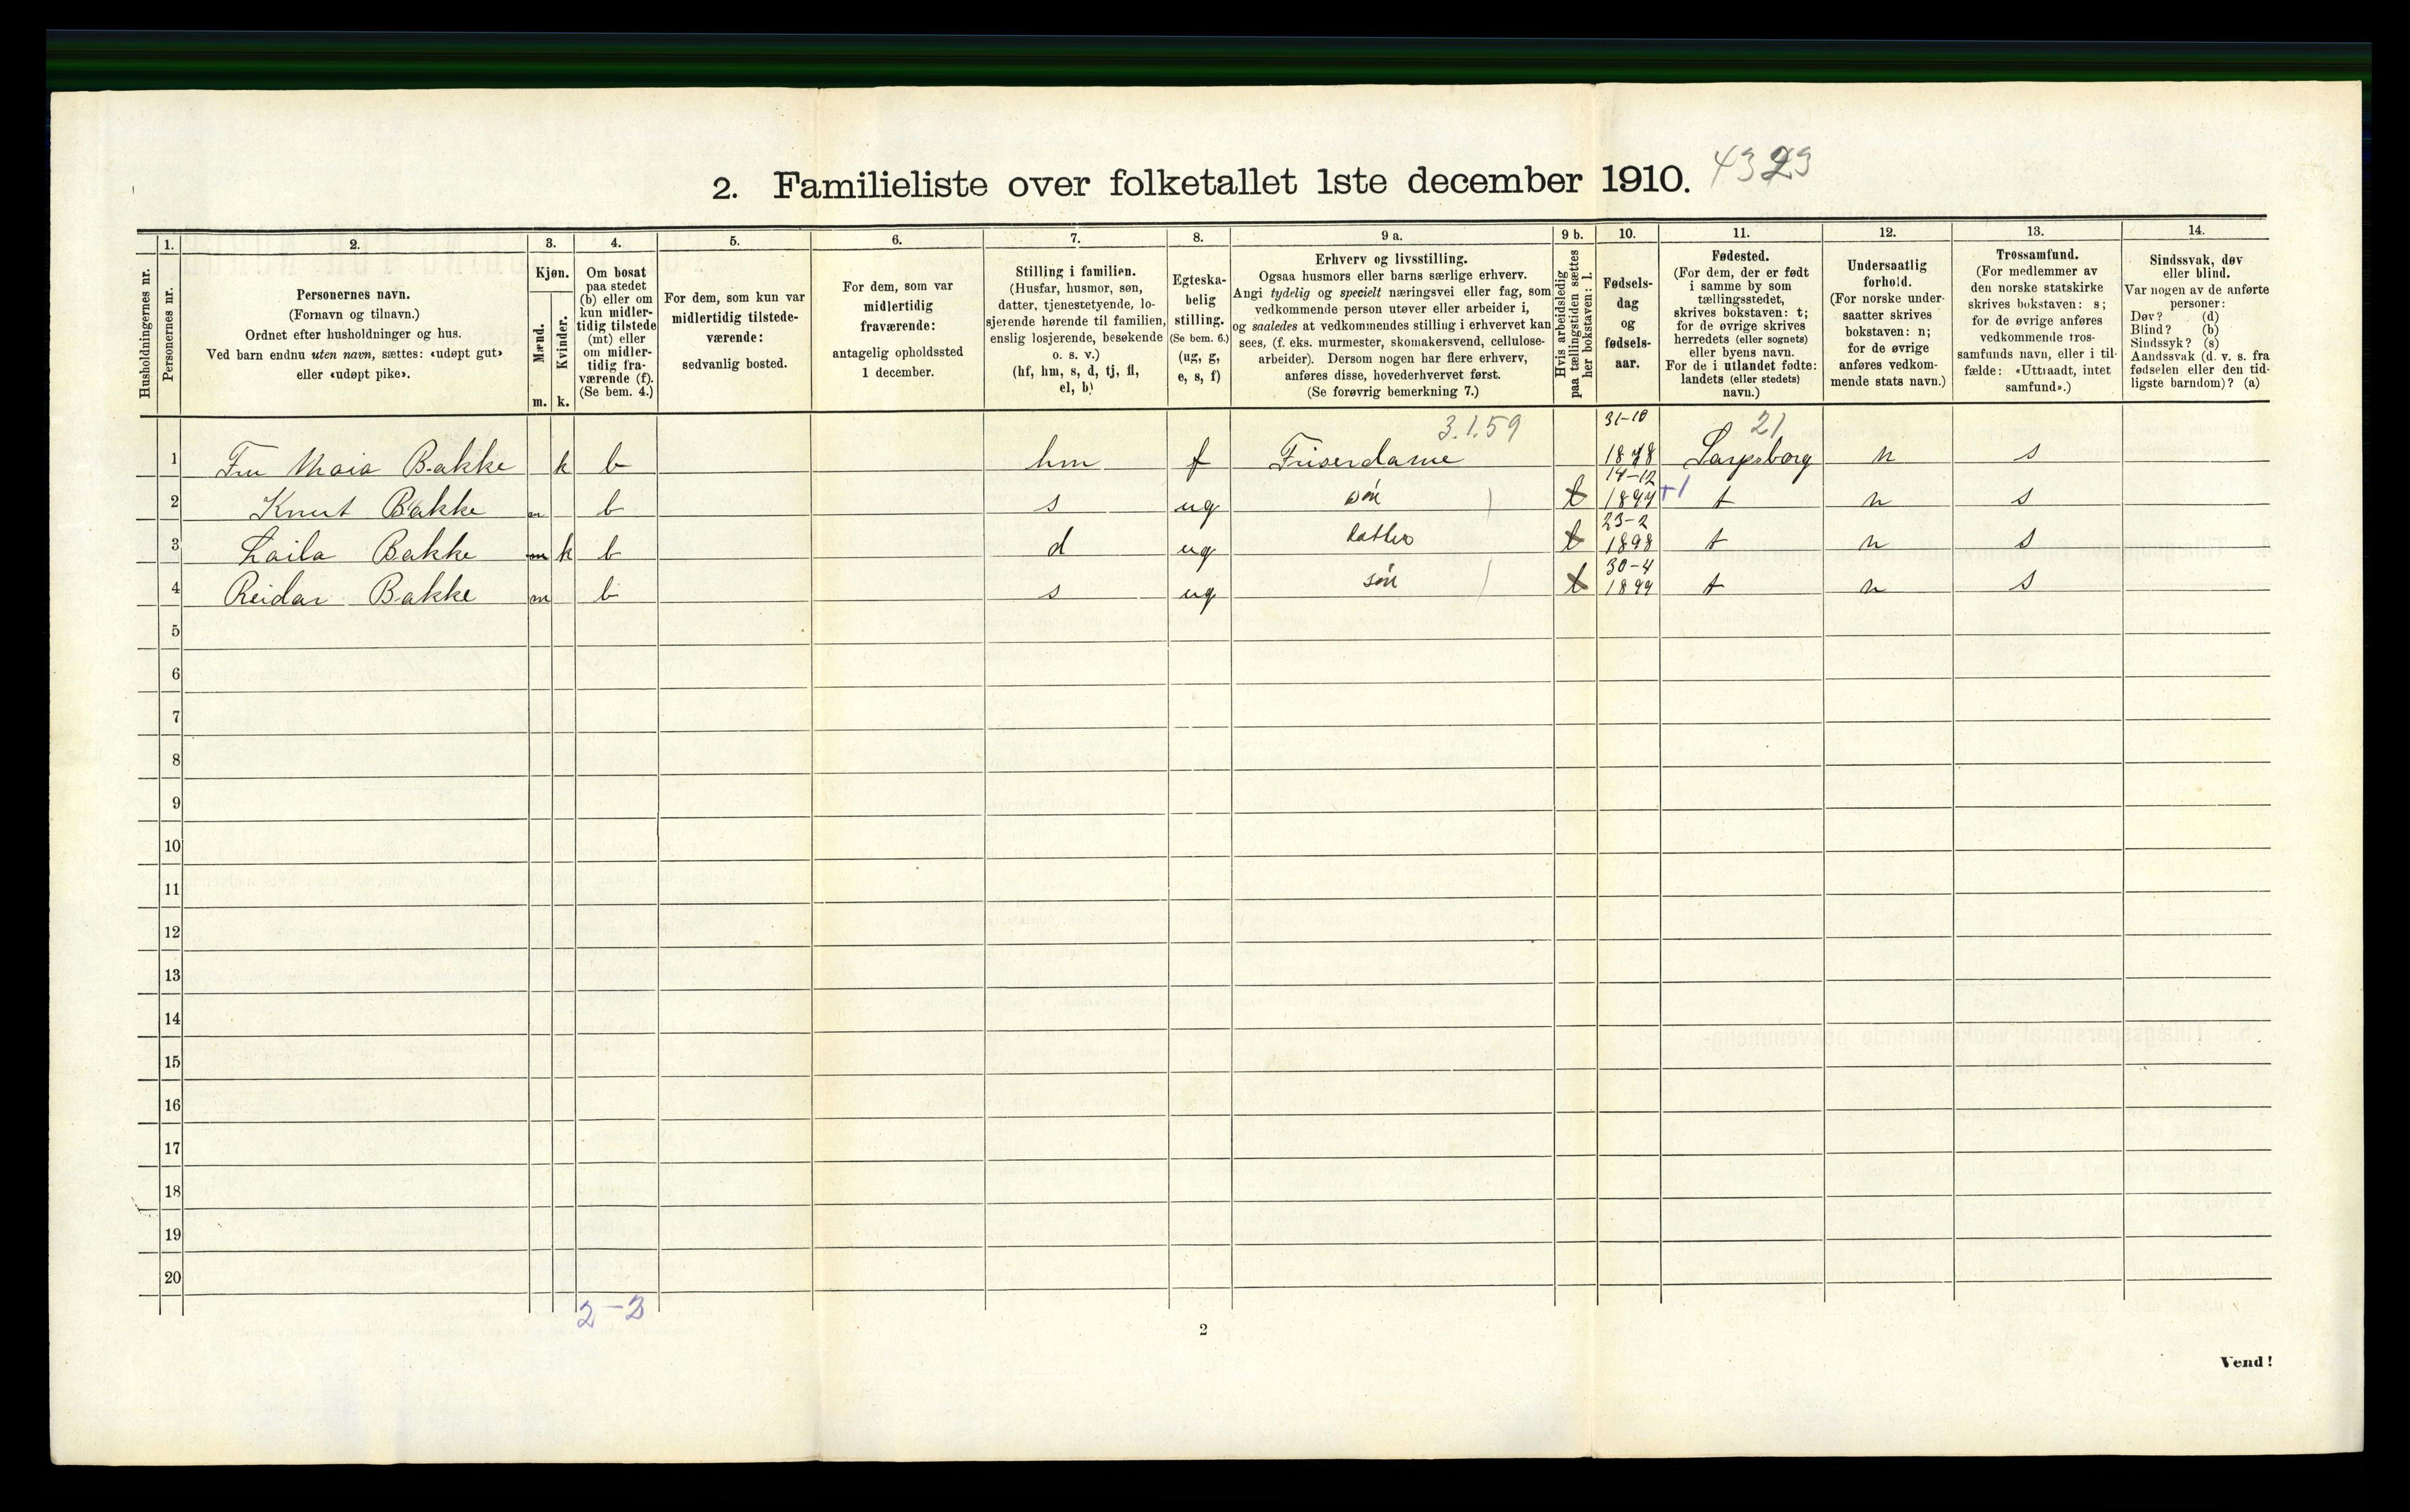 2. Familieliste over folketallet 1ste december 1910. 4323
Husholdningernes nr.
1.
Personernes nr.
2.
Personernes navn.
(Fornavn og tilnavn.)
Ordnet efter husholdninger og hus.
Ved barn endnu uten navn, sættes: «udøpt gut»
eller «udøpt pike».
3.
Kjøn.
Mænd.
Kvinder.
m. k.
4.
Om bosat
paa stedet
(b) eller om
kun midler-
tidig tilstede
(mt) eller
om midler-
tidig fra-
værende (f).
(Se bem. 4.)
5.
For dem, som kun var
midlertidig tilstede-
værende:
sedvanlig bosted.
6.
For dem, som var
midlertidig
fraværende:
antagelig opholdssted
1 december.
7.
Stilling i familien.
(Husfar, husmor, søn,
datter, tjenestetyende, lo-
sjerende hørende til familien,
enslig losjerende, besøkende
o. s. v.)
(hf, hm, s, d, tj, fl,
el, b)
8.
Egteska-
belig
stilling.
(Se bem. 6.)
(ug, g,
e, s, f)
9 a.
Erhverv og livsstilling.
Ogsaa husmors eller barns særlige erhverv.
Angi tydelig og specielt næringsvei eller fag, som
vedkommende person utøver eller arbeider i,
og saaledes at vedkommendes stilling i erhvervet kan
sees, (f. eks. murmester, skomakersvend, cellulose-
arbeider). Dersom nogen har flere erhverv,
anføres disse, hovederhvervet først.
(Se forøvrig bemerkning 7.)
9 b.
Hvis arbeidsledig
paa tællingstiden sættes
her bokstaven: l.
10.
Fødsels-
dag
og
fødsels-
aar.
11.
Fødested.
(For dem, der er født
i samme by som
tællingsstedet,
skrives bokstaven: t;
for de øvrige skrives
herredets (eller sognets)
eller byens navn.
For de i utlandet fødte:
landets (eller stedets)
navn.)
12.
Undersaatlig
forhold.
(For norske under-
saatter skrives
bokstaven: n;
for de øvrige
anføres vedkom-
mende stats navn.)
13.
Trossamfund.
(For medlemmer av
den norske statskirke
skrives bokstaven: s;
for de øvrige anføres
vedkommende tros-
samfunds navn, eller i til-
fælde: «Uttraadt, intet
samfund».)
14.
Sindssvak, døv
eller blind.
Var nogen av de anførte
personer:
Døv? (d)
Blind? (b)
Sindssyk? (s)
Aandssvak (d. v. s. fra
fødselen eller den tid-
ligste barndom)? (a)
3.1.59 31-10 21
1 Fru Maia Bakke k b hm f Friserdame 1878 Sarpsborg n s
14-12
2 Knut Bakke m b s ug søn t 1894 +1 t n s
23-2
3 Laila Bakke m k b d ug datter t 1898 t n s
30-4
4 Reidar Bakke m b s ug søn t 1899 t n s
5
6
7
8
9
10
11
12
13
14
15
16
17
18
19
20
2-2
2
Vend!